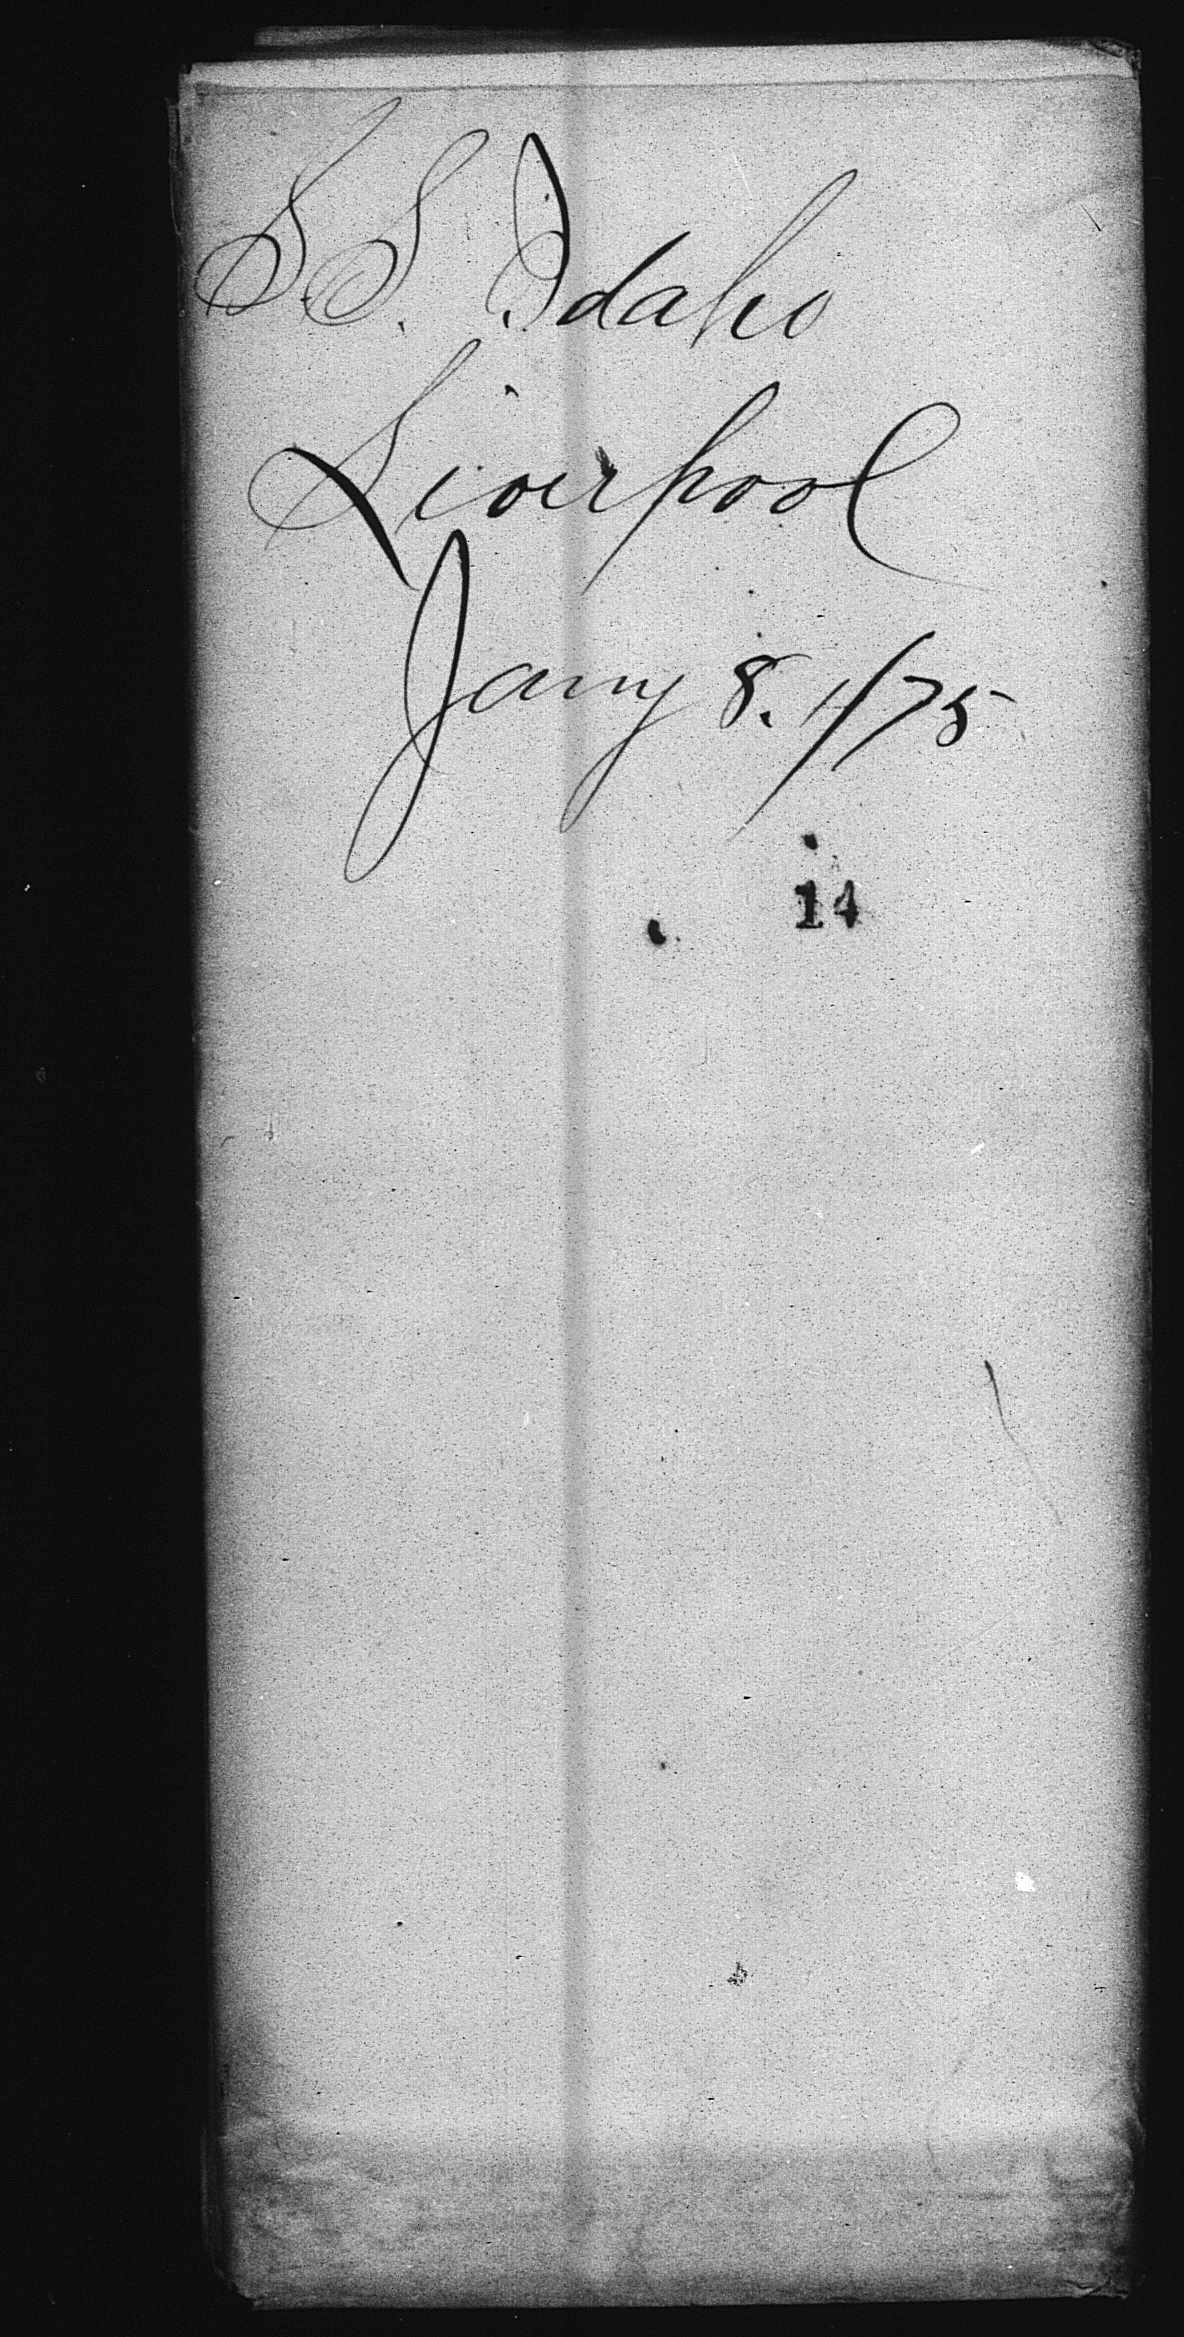 S.S. Idaho
Liverpool
Jany 8. 1/75
14